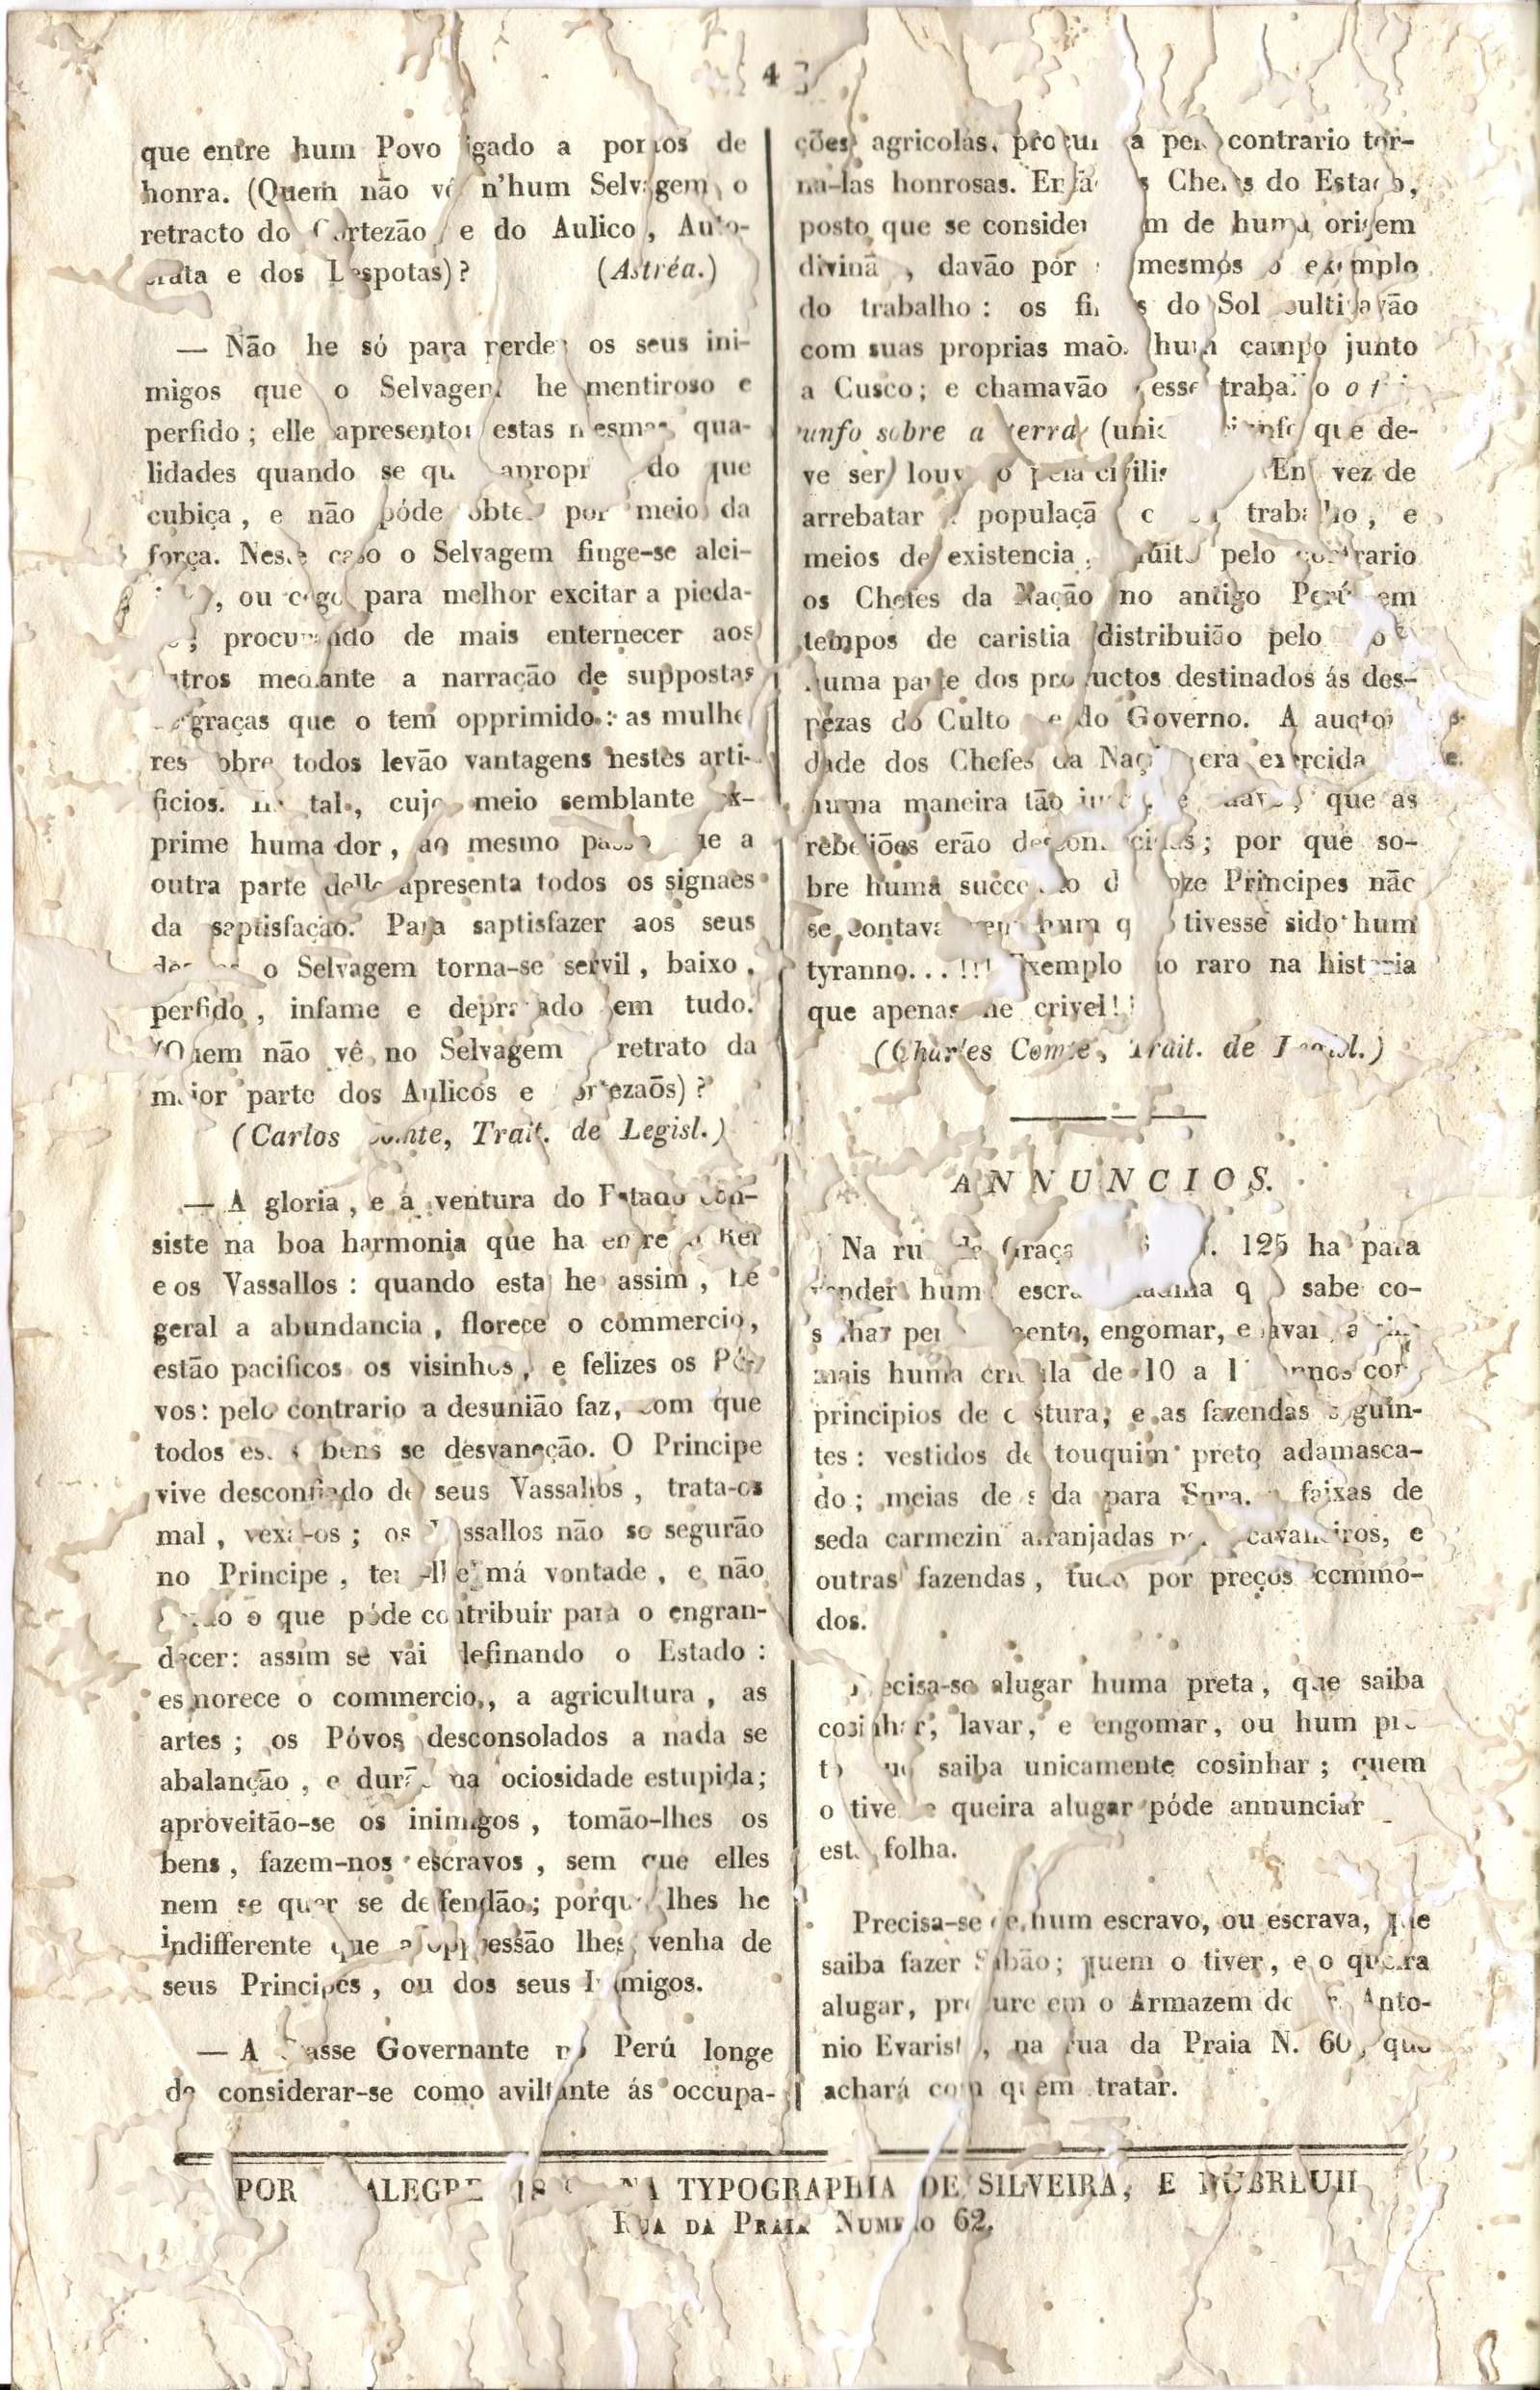 4
que entre hum Povo ligado a pontos de
honra. (Quem não vê n'hum Selvagem o
retracto do Cortezão, e do Aulico, Auto-
crata e dos Despotas)? (Astréa.)
— Não he só para perder os seus ini-
migos que o Selvagem he mentiroso e
perfido; elle apresentou estas mesmas qua-
lidades quando se do que
cubiça, e não póde obter por meio da
força. Neste caso o Selvagem finge-se alei-
, ou cego para melhor excitar a pieda-
; procurando de mais enternecer aos
outros mediante a narração de suppostas
desgraças que o tem opprimido: as mulhe
res sobre todos levão vantagens nestes arti-
ficios. tal, cujo meio semblante ex-
prime huma dor, ao mesmo passo que a
outra parte delle apresenta todos os signaes
da saptisfação. Para saptisfazer aos seus
o Selvagem torna-se servil, baixo,
perfido, infame e depravado em tudo.
(Quem não vê no Selvagem retrato da
maior parte dos Aulicos e Cortezaõs)?
(Carlos Comte, Trait. de Legisl.)
— A gloria, e a ventura do Estado con-
siste na boa harmonia que ha entre o Rei
e os Vassallos: quando esta he assim, he
geral a abundancia, florece o commercio,
estão pacificos os visinhos, e felizes os Pó-
vos: pelo contrario a desunião faz, com que
todos estes bens se desvaneção. O Principe
vive desconfiado de seus Vassallos, trata-os
mal, vexa-os; os Vassallos não se segurão
no Principe, tem-lhe má vontade, e não
o que póde contribuir para o engran-
decer: assim se vai definando o Estado:
esmorece o commercio, a agricultura, as
artes; os Póvos desconsolados a nada se
abalanção, e durão na ociosidade estupida;
aproveitão-se os inimigos, tomão-lhes os
bens, fazem-nos escravos, sem que elles
nem se quer se defendão; porque lhes he
indifferente que a oppressão lhes venha de
seus Principes, ou dos seus Inimigos.
— A Classe Governante no Perú longe
de considerar-se como aviltante ás occupa-
ções agricolas, procurava pelo contrario tor-
na-las honrosas. Então os Chefes do Estado,
posto que se considerem de huma origem
divina, davão por mesmos o exemplo
do trabalho: os filhos do Sol cultivavão
com suas proprias maõs hum campo junto
a Cusco; e chamavão esse trabalho o tri-
unfo sobre a terra (unico triunfo que de-
ve ser louvado pela Em vez de
arrebatar população trabalho, e
meios de existencia, muito pelo contrario
os Chefes da Nação no antigo Perú em
tempos de caristia distribuião pelo Povo
huma parte dos productos destinados ás des-
pezas do Culto e do Governo. A auctori-
dade dos Chefes da Nação era exercida de
huma maneira tão justa, e suave, que as
rebeliões erão desconhecidas; por que so-
bre huma successão de doze Principes não
se contava nem hum que tivesse sido hum
tyranno...!!! Exemplo tão raro na historia
que apenas he crivel!!
(Charles Comte, Trait. de Legisl.)
ANNUNCIOS.
Na rua da Graça N. 125 ha para
vender huma escrava que sabe co-
sinhar perfeitamente, engomar, e lavar,
mais huma crioula de 10 a annos com
principios de costura; e as fazendas seguin-
tes: vestidos de touquim preto adamasca-
do; meias de seda para Snra. faixas de
seda carmezin arranjadas para cavalheiros, e
outras fazendas, tudo por preços commo-
dos.
Precisa-se alugar huma preta, que saiba
cosinhar, lavar, e engomar, ou hum pre-
to que saiba unicamente cosinhar; quem
o tiver e queira alugar póde annunciar
esta folha.
Precisa-se de hum escravo, ou escrava, que
saiba fazer Sabão; quem o tiver, e o queira
alugar, procure em o Armazem do Sr. Anto-
nio Evaristo, na rua da Praia N. 60, que
achará com quem tratar.
POR ALEGRE 18 NA TYPOGRAPHIA DE SILVEIRA, E DUBREUIL
RUA DA PRAIA NUMERO 62.